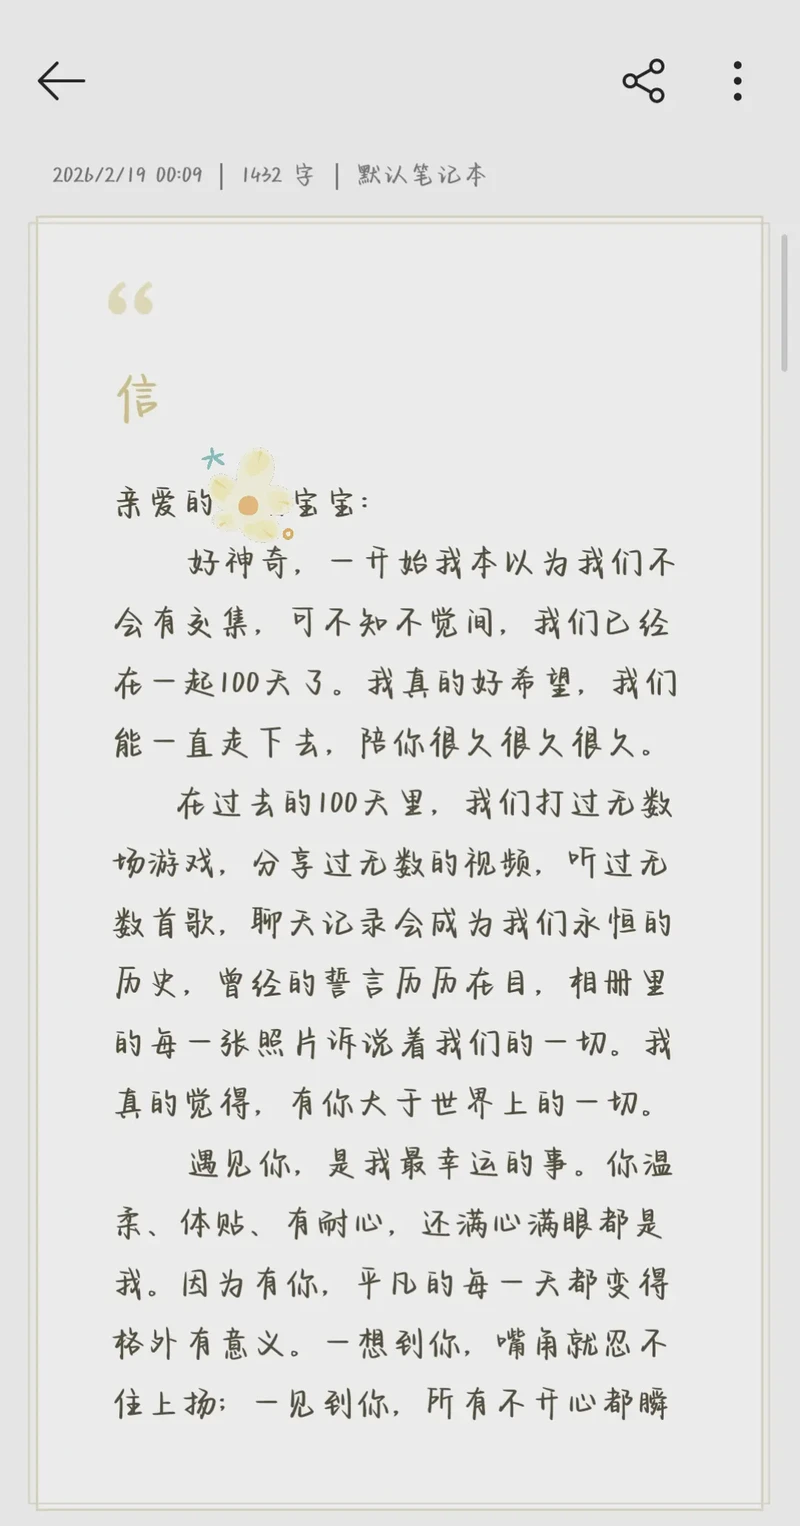 2026/2/19 00:09 | 1432 字 | 默认笔记本
“
信
亲爱的宝宝：
好神奇，一开始我本以为我们不
会有交集，可不知不觉间，我们已经
在一起100天了。我真的好希望，我们
能一直走下去，陪你很久很久很久。
在过去的100天里，我们打过无数
场游戏，分享过无数的视频，听过无
数首歌，聊天记录会成为我们永恒的
历史，曾经的誓言历历在目，相册里
的每一张照片诉说着我们的一切。我
真的觉得，有你大于世界上的一切。
遇见你，是我最幸运的事。你温
柔、体贴、有耐心，还满心满眼都是
我。因为有你，平凡的每一天都变得
格外有意义。一想到你，嘴角就忍不
住上扬；一见到你，所有不开心都瞬